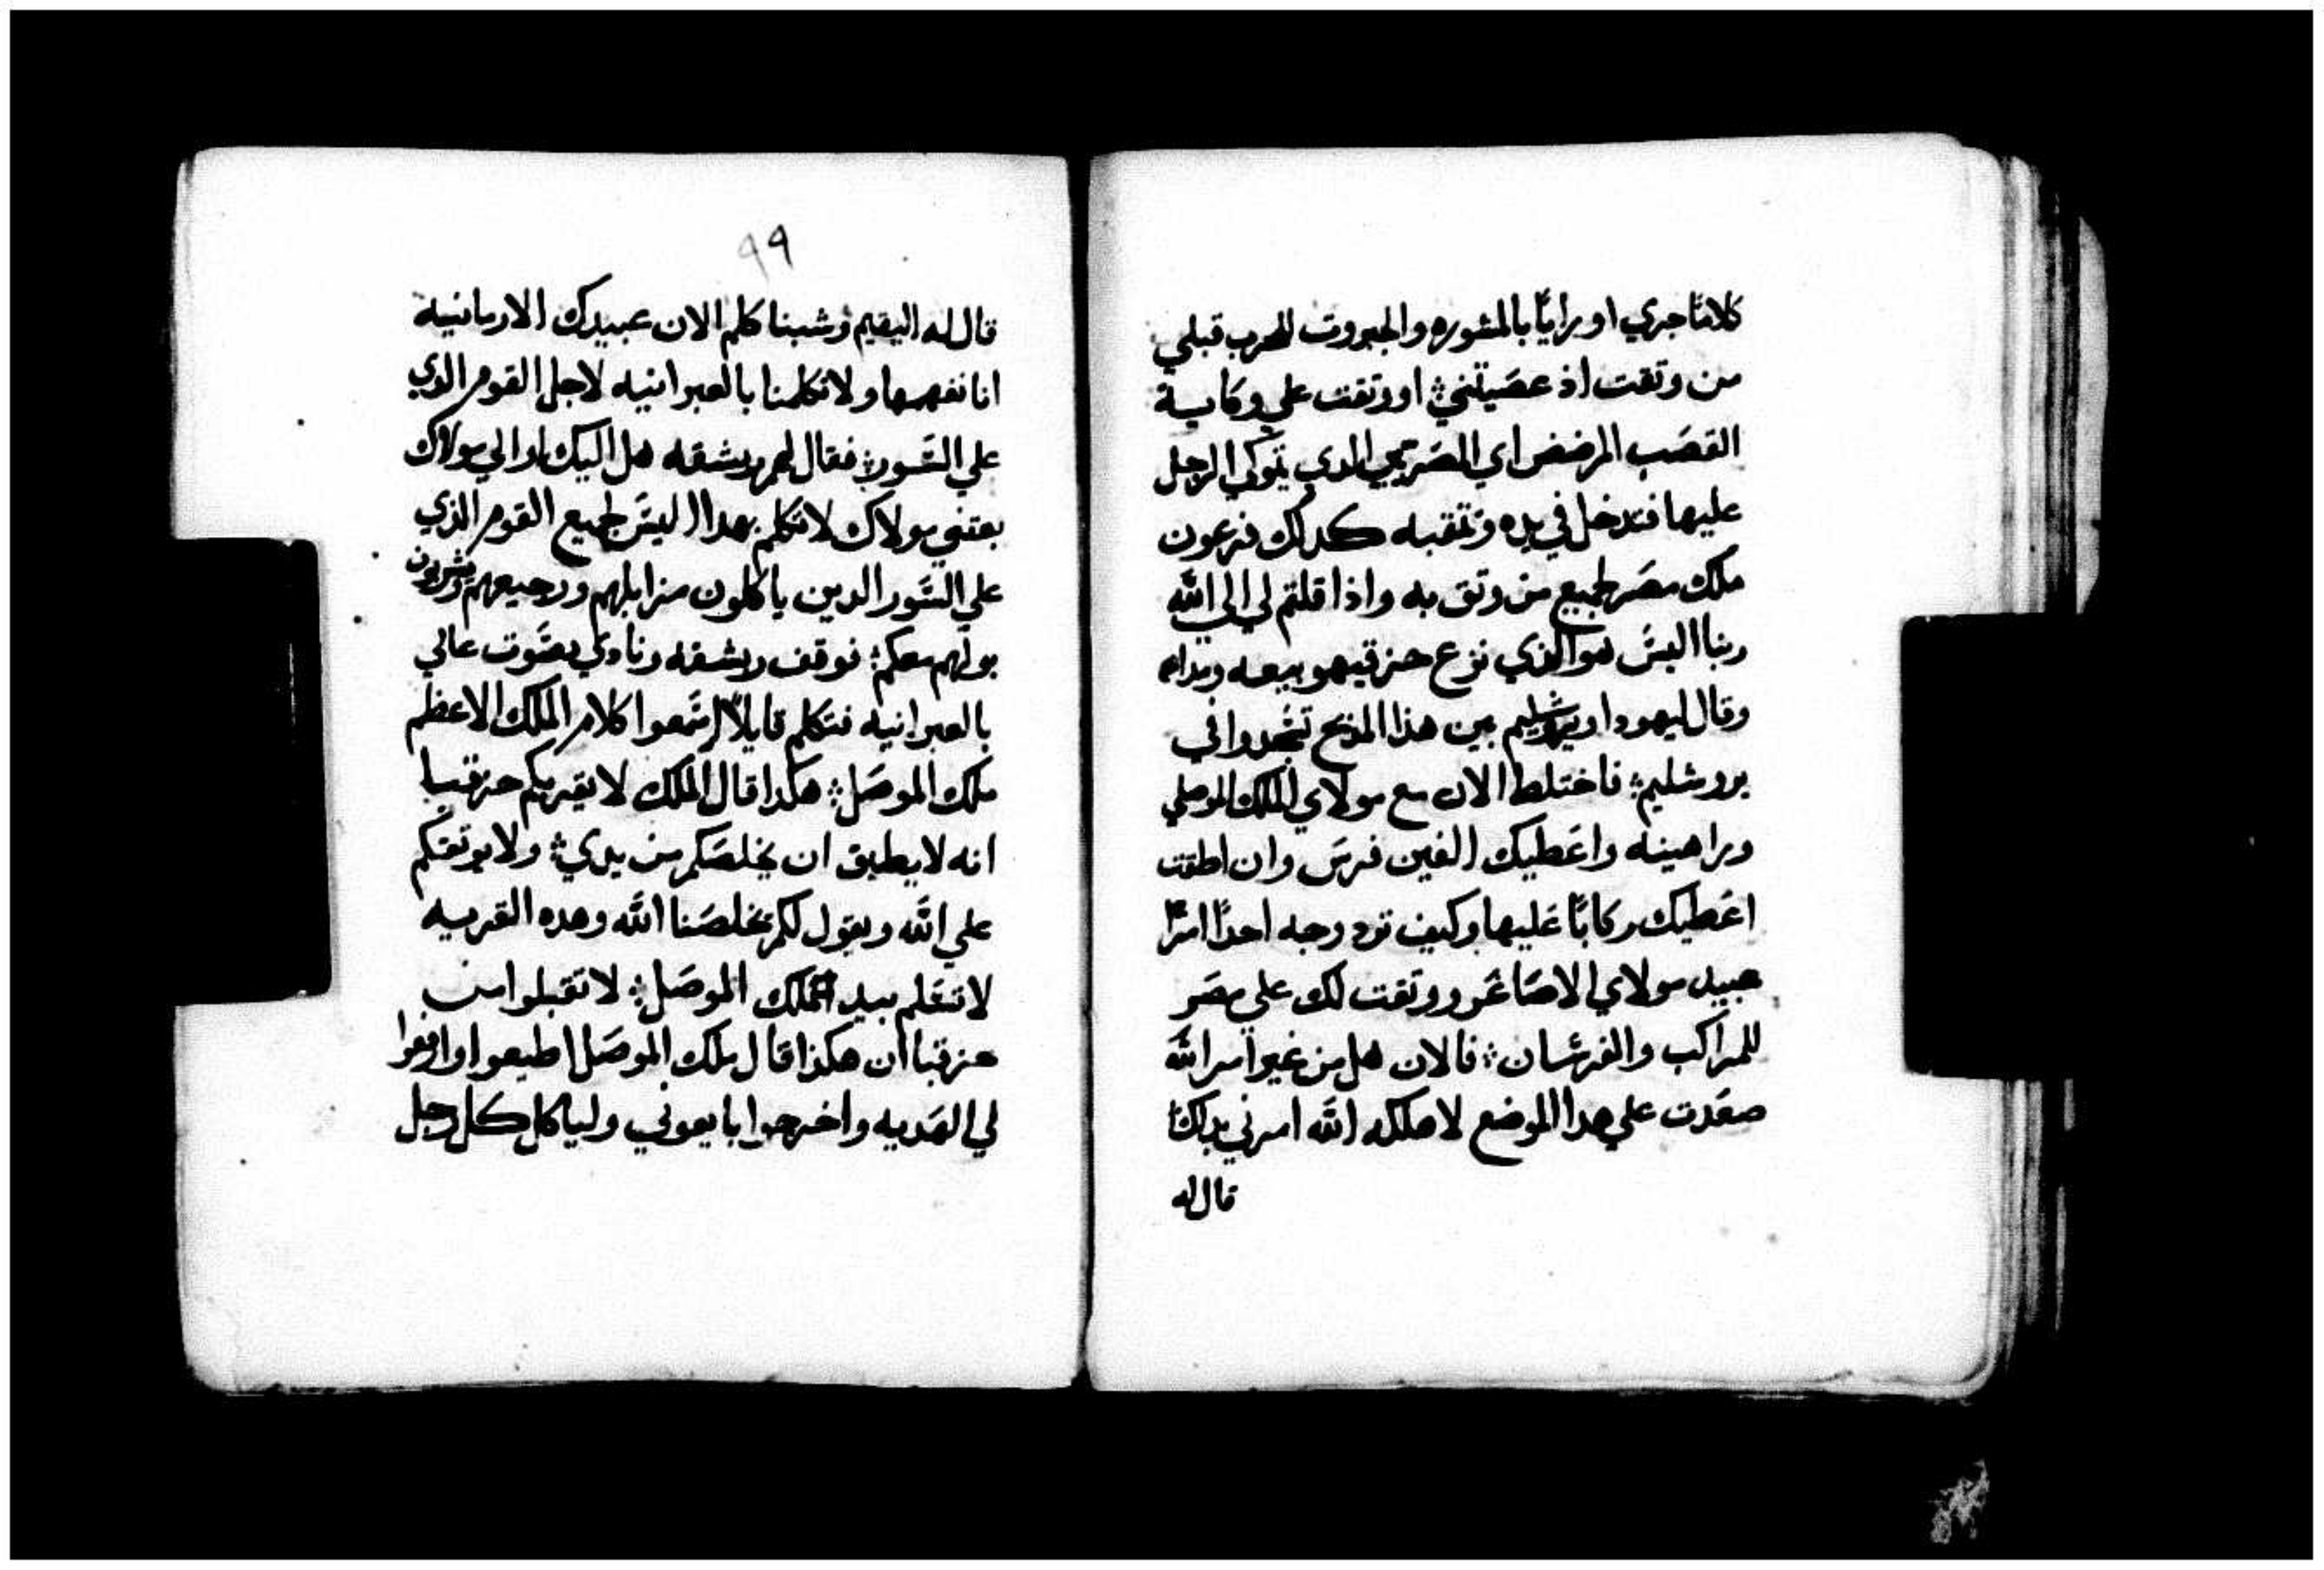 كلامًا جري او رايًا بالمشوره والجبروت للحرب قبلي
من وتقت اذ عصيتني؛ او وتقت علي وكاية
القصب المرضض اي المصريين الدي يتوكي الرجل
عليها فتدخل في يده وتتقبه كدلك فرعون
ملك مصر لجميع من وتق به واذا قلتم لي الي الله
ربنا اليس هو الذي نزع حزقيهو بيعه ومداه
وقال ليهودا ويروشليم بين هذا المذبح تسجدوا في
يروشليم؛ فاختلط الان مع مولاي الملك الموصلي
وراهينه واعطيك الفين فرس وان اطقت
اعطيك ركابًا عليها وكيف ترد وجه احدًا امرًا
عبيد مولاي الاصاغر ووتقت لك علي مصر
للمراكب والفرسان؛ فالان هل من غير امر الله
صعدت علي هدا الموضع لاهلكه الله امرني بدلك
قال له
٩٩
قال له اليقيم وشبنا كلم الان عبيدك الارمانيه
انا نفهمها ولا تكلمنا بالعبرانيه لاجل القوم الدي
علي السور؛ فقال لهم ربشقه هل اليك او الي مولاك
بعتني مولاك لاتكلم بهدا ا ليس لجميع القوم الذي
علي السور الدين ياكلون مزابلهم ورجيعهم ويشربون
بولهم معكم؛ فوقف ربشقه ونادي بصوت عالي
بالعبرانيه فتكلم قايلًا اسمعوا كلام الملك الاعظم
ملك الموصل؛ هكدا قال الملك لا يغريكم حزقيا
انه لا يطيق ان يخلصكم من يدي؛ ولا يوتقكم
علي الله ويقول لكم يخلصنا الله وهده القريه
لا تسلم بيد الملك الموصل؛ لا تقبلوا من
حزقيا ان هكذا قال ملك الموصل اطيعوا وارفعوا
لي الهديه واخرجوا بايعوني ولياكل كل رجل